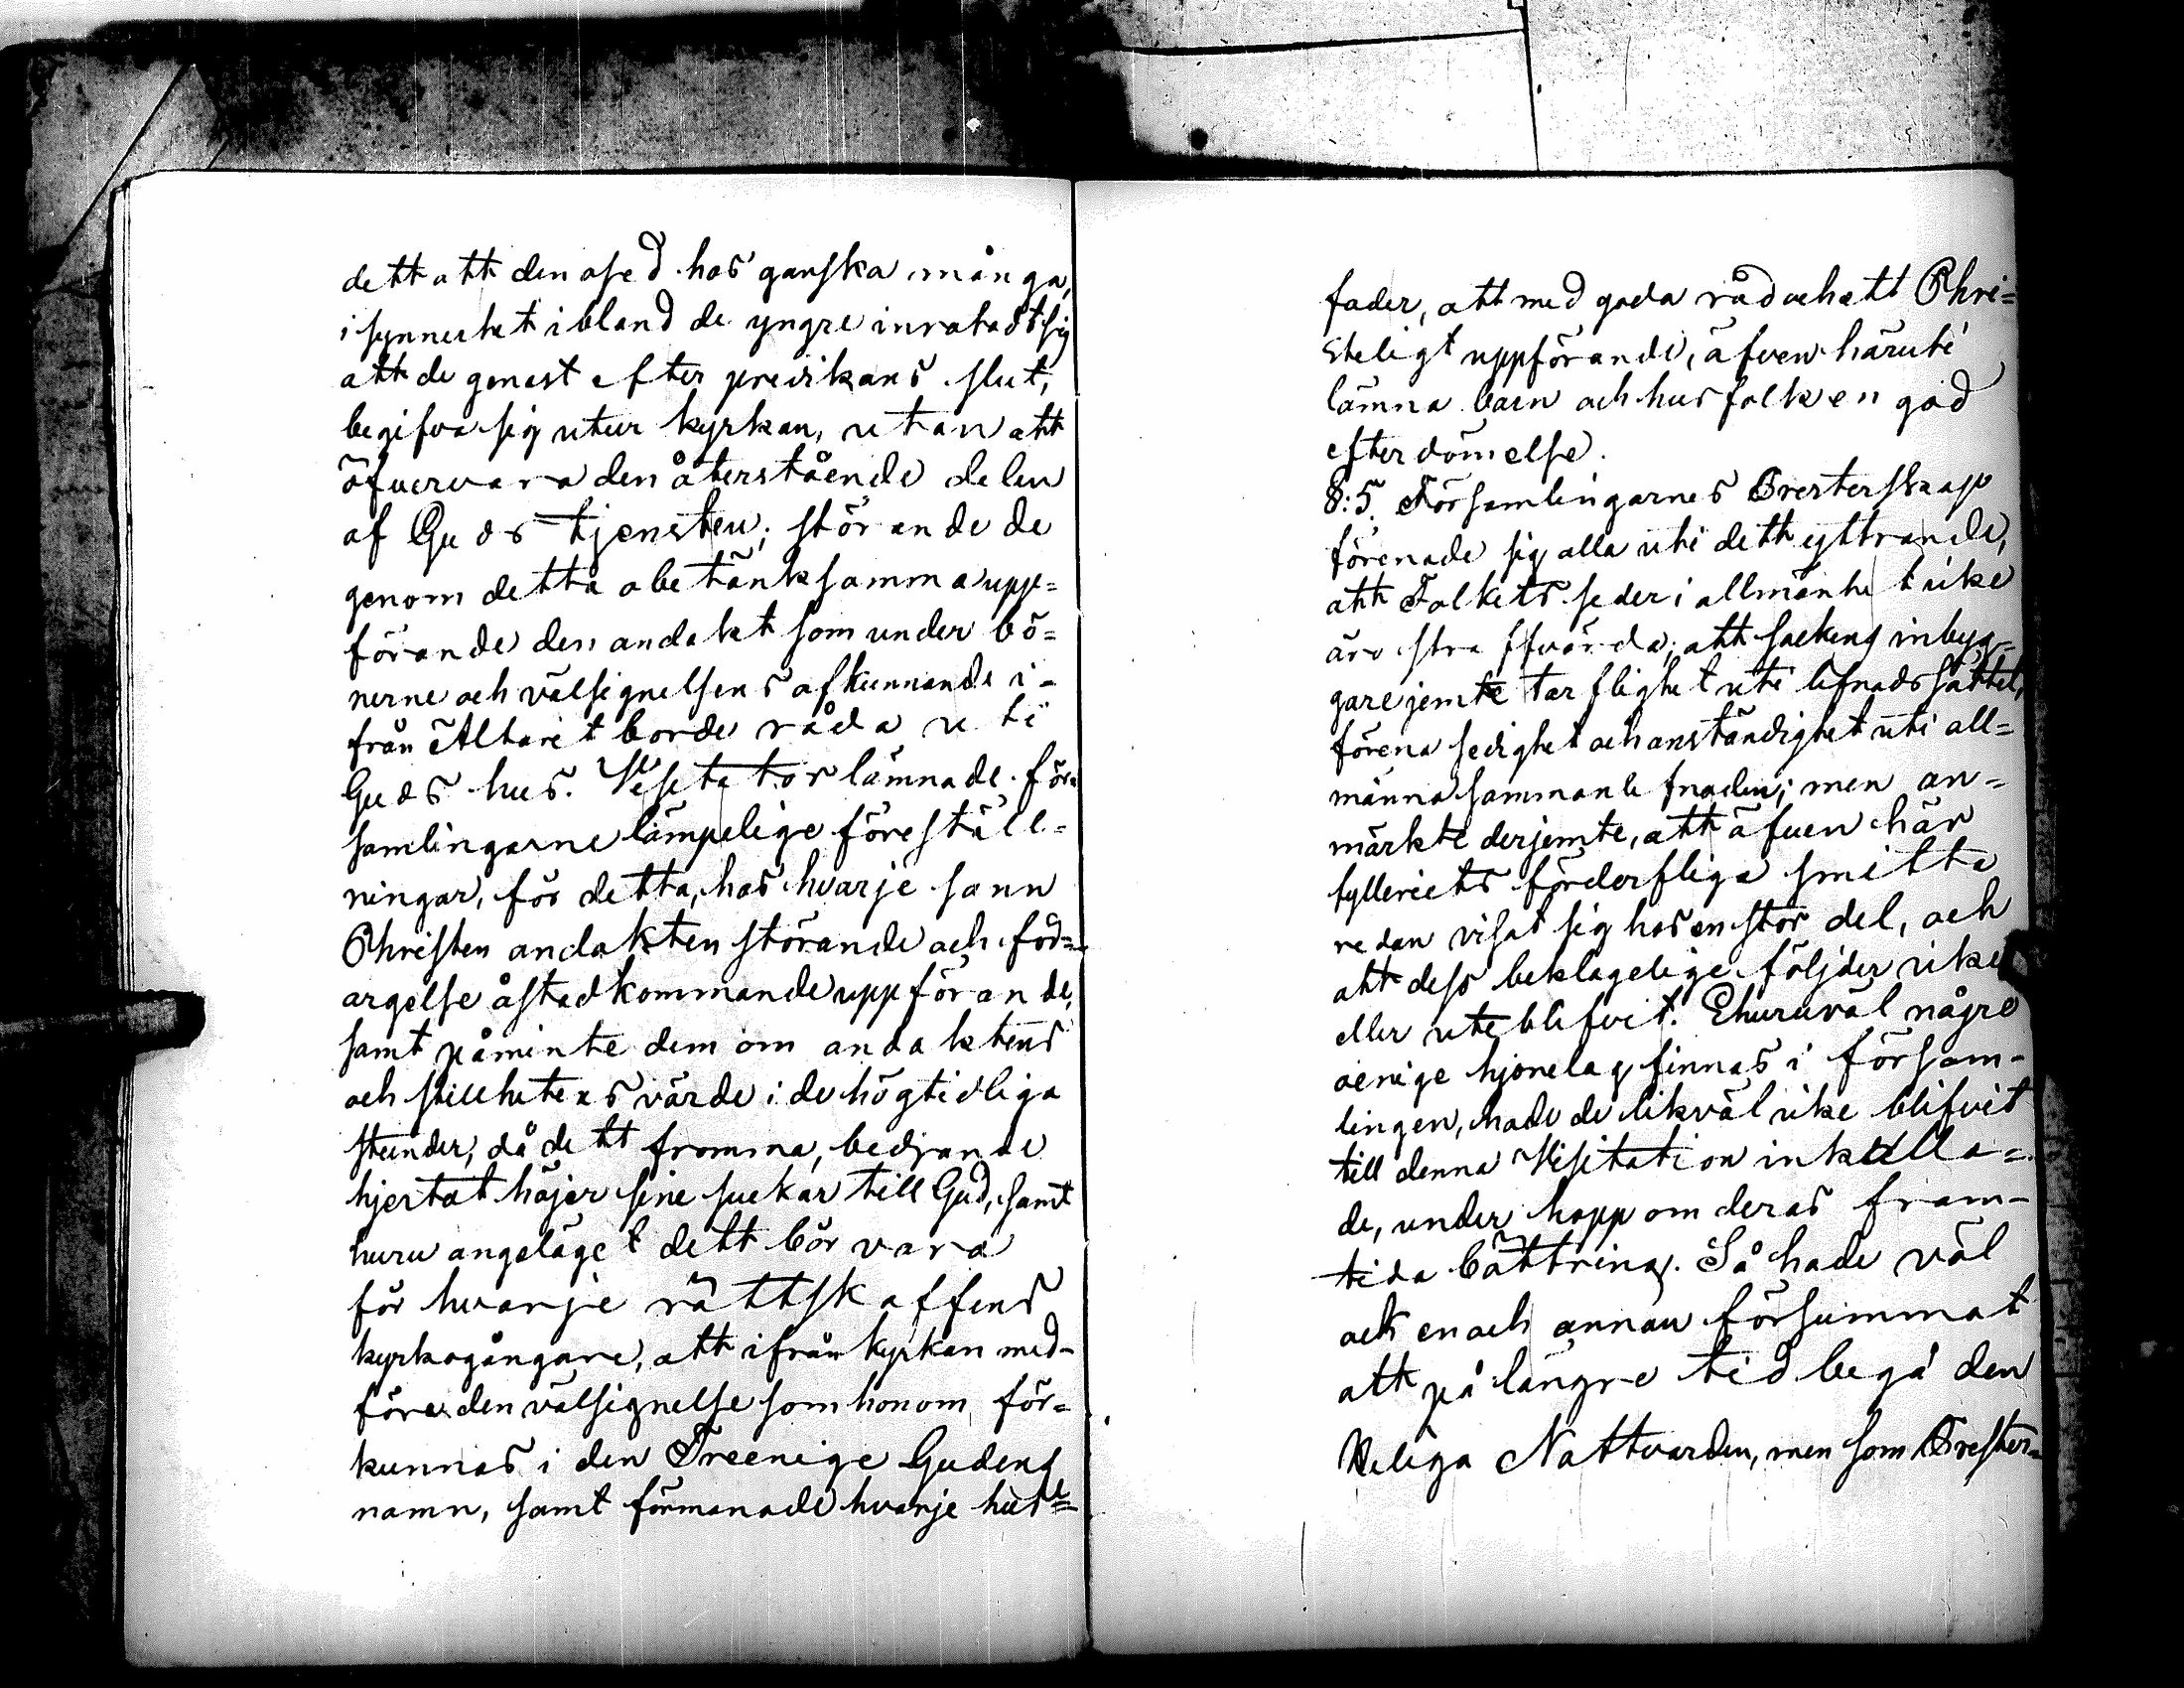 dett att den osed hos ganska många,
i synnerhet ibland de yngre inrotadt sig
att de genast efter predikans slut,
begifva sig utur kyrkan, utan att
öfvervara den återstående delen
af Guds tjensten; störande de
genom detta obetänksamma upp=
förande den andakt som under bö=
nerne och välsignelsens afkunnande i-
från Altaret borde råda uti
Guds hus. Visitator lämnade för=
samlingarne lämpelige föreställ=
ningar, för detta, hos hvarje sann
Christen andakten störande och för=
argelse åstadkommande uppförande,
samt påminte dem om andaktens
och stillhetens värde i de högtidliga
stunder, då dett fromma, bedjande
hjertat höjer sine suckar till Gud, samt
huru angeläget dett bör vara
för hvarje rättskaffens
kyrkogångare, att ifrån kyrkan med-
föra den välsignelse som honom för=
kunnas i den Treenige Gudens
namn, samt förmanade hvarje hus=
fader, att med goda råd och ett Chri=
steligt uppförande, äfven häruti
lämna barn och husfolk en god
efterdömelse.
8:5. Församlingarnes Presterskap
förenade sig alla uti dett yttrande,
att Folkets seder i allmänhet icke
äro straffvärda; att sockens inbyg=
gare jemte tarflighet uti lefnadssättet,
förena sedighet och anständighet uti all=
männa sammanlefnaden; men an=
märkte derjemte, att äfven här
fylleriets förderfliga smitta
redan visat sig hos en stor del, och
att dess beklagelige följder icke
eller uteblifvit. Ehuruväl någre
oenige hjonelag finnas i försam-
lingen, hade de likväl icke blifvit
till denna Visitation inkalla=
de, under hopp om deras fram-
tida bättring. Så hade väl
ock en och annan försummat
att på längre tid begå den
Heliga Nattvarden, men som Prester=